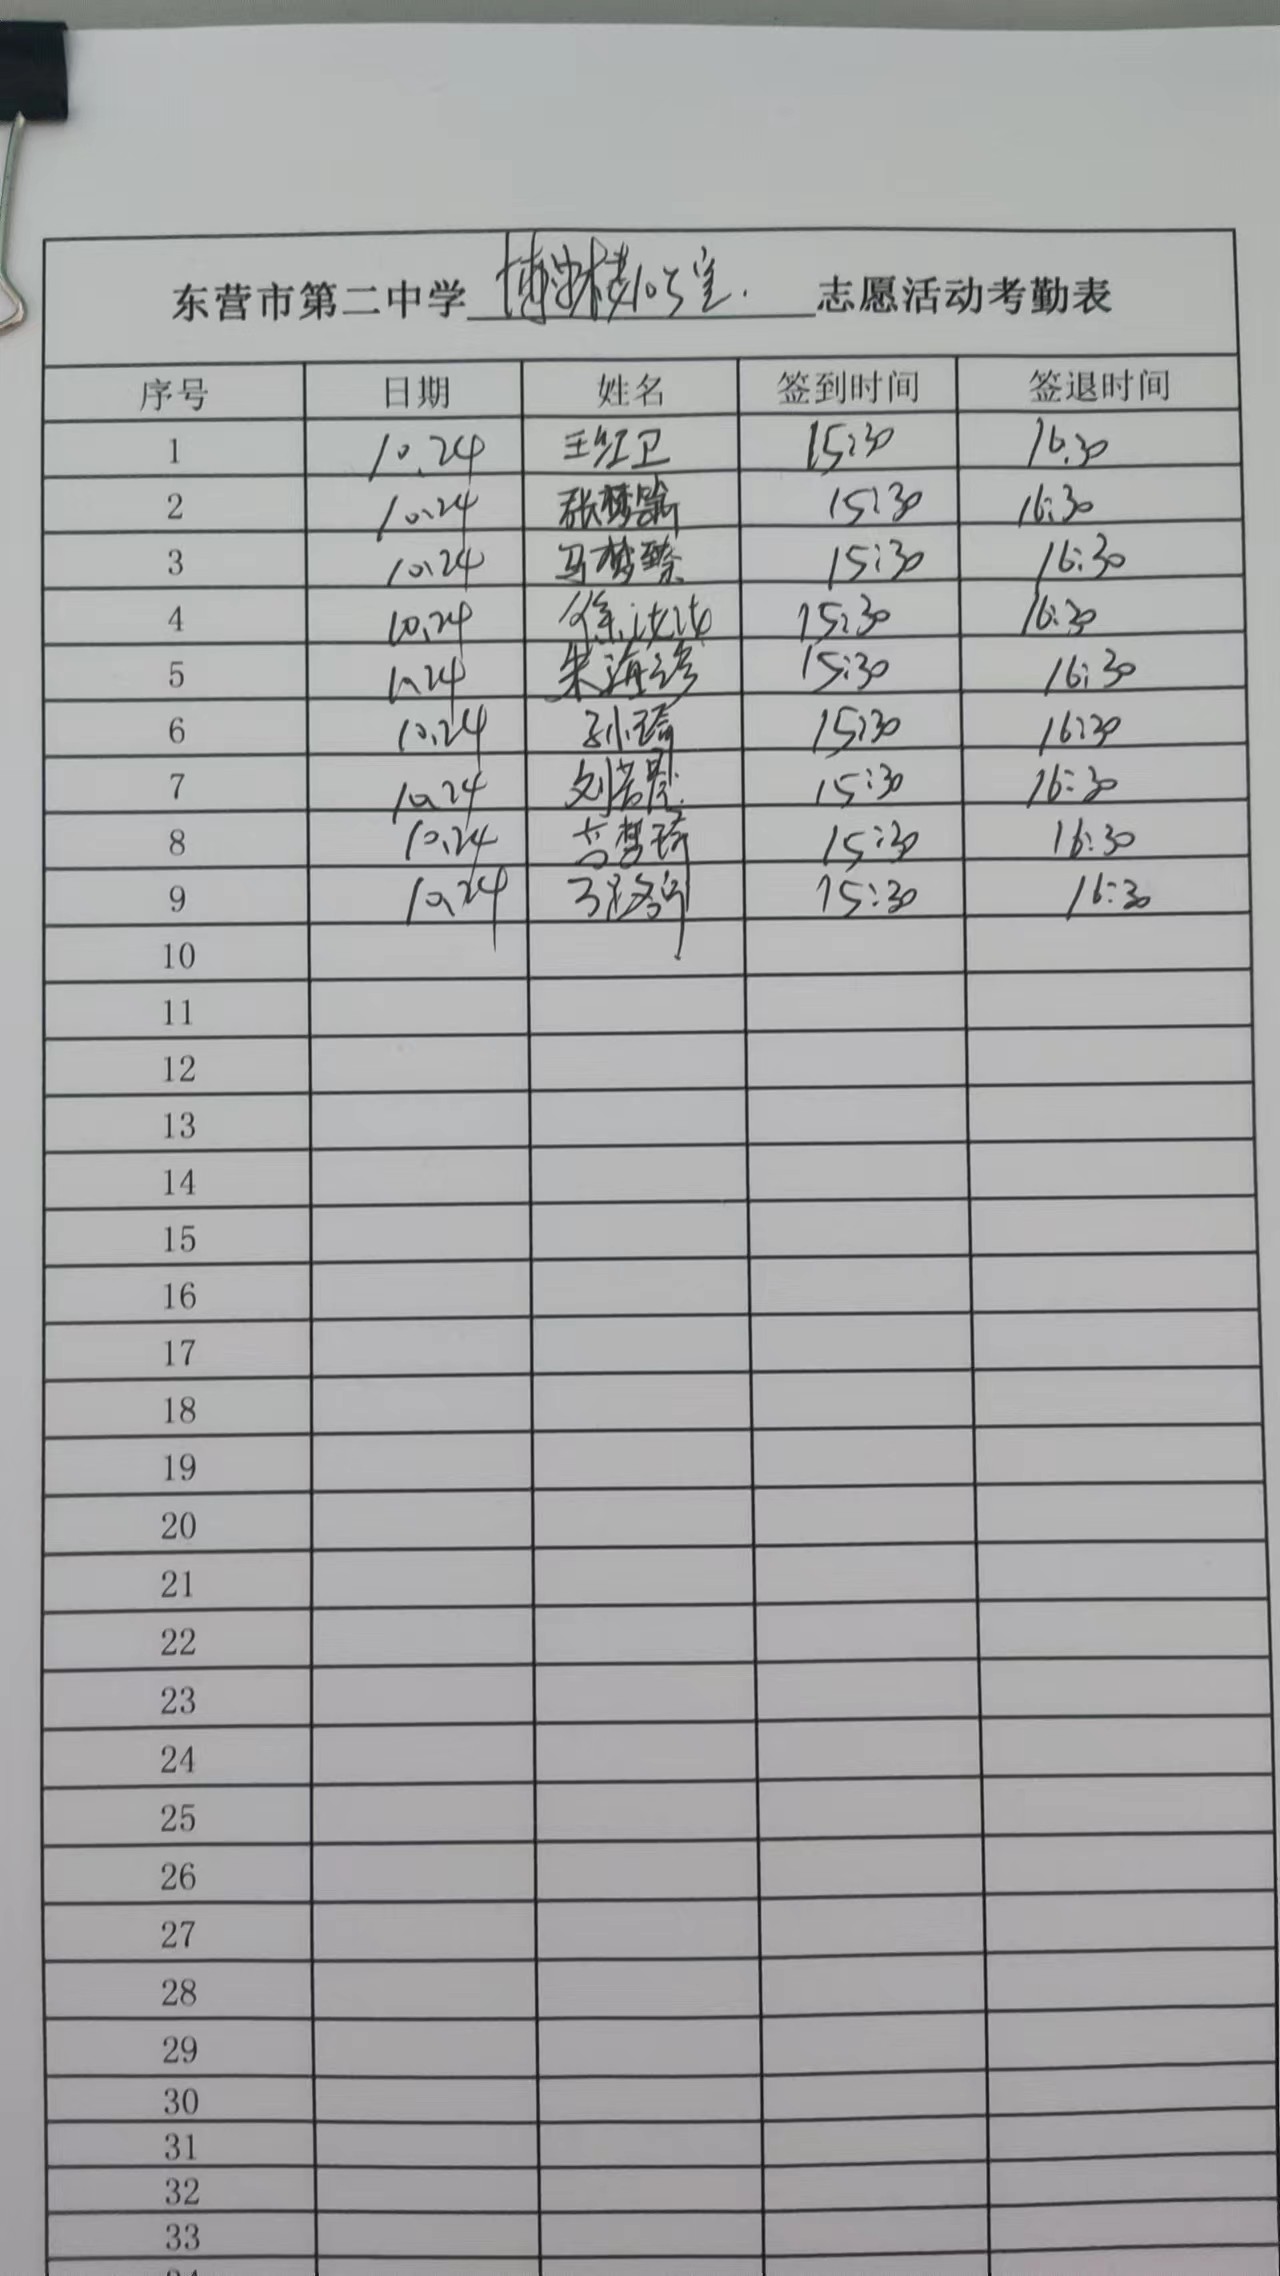 东营市第二中学 博 楼105室. 志愿活动考勤表
序号 日期 姓名 签到时间 签退时间
1 10.24 王红卫 15:30 16:30
2 10.24 张梦 15:30 16:30
3 10.24 马梦臻 15:30 16:30
4 10.24 徐 15:30 16:30
5 10.24 朱海 15:30 16:30
6 10.24 孙琦 15:30 16:30
7 10.24 刘若 15:30 16:30
8 10.24 梦琦 15:30 16:30
9 10.24 15:30 16:30
10
11
12
13
14
15
16
17
18
19
20
21
22
23
24
25
26
27
28
29
30
31
32
33